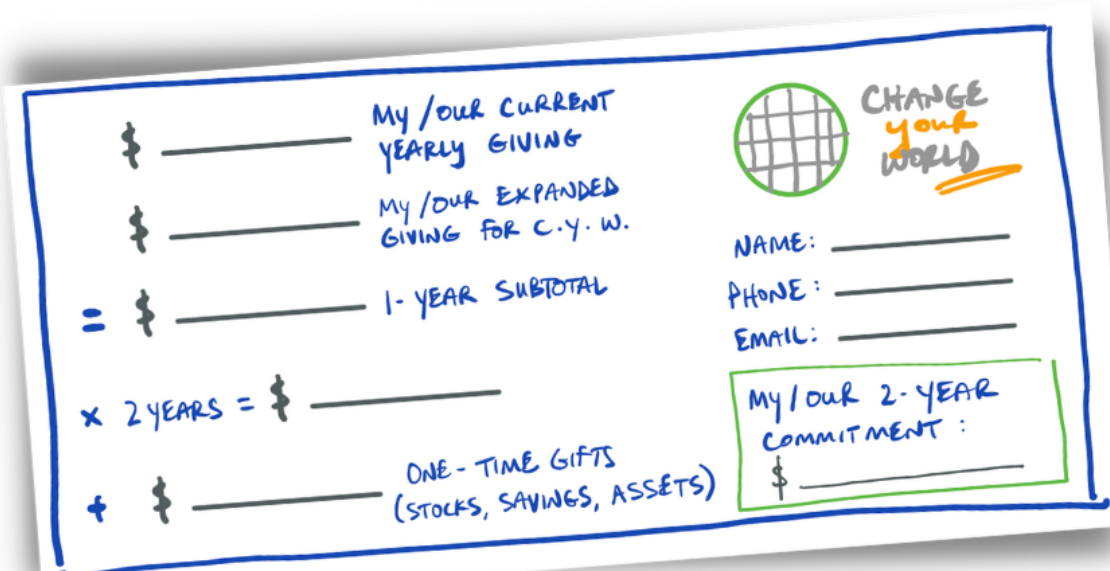 $ ________ My/our current
yearly giving
$ ________ My/our expanded
giving for C.Y.W.
= $ ________ 1-year subtotal
x 2 years = $ ________
+ $ ________ one-time gifts
(stocks, savings, assets)
CHANGE
your
WORLD
NAME: ________
PHONE: ________
EMAIL: ________
My/our 2-year
commitment:
$ ________